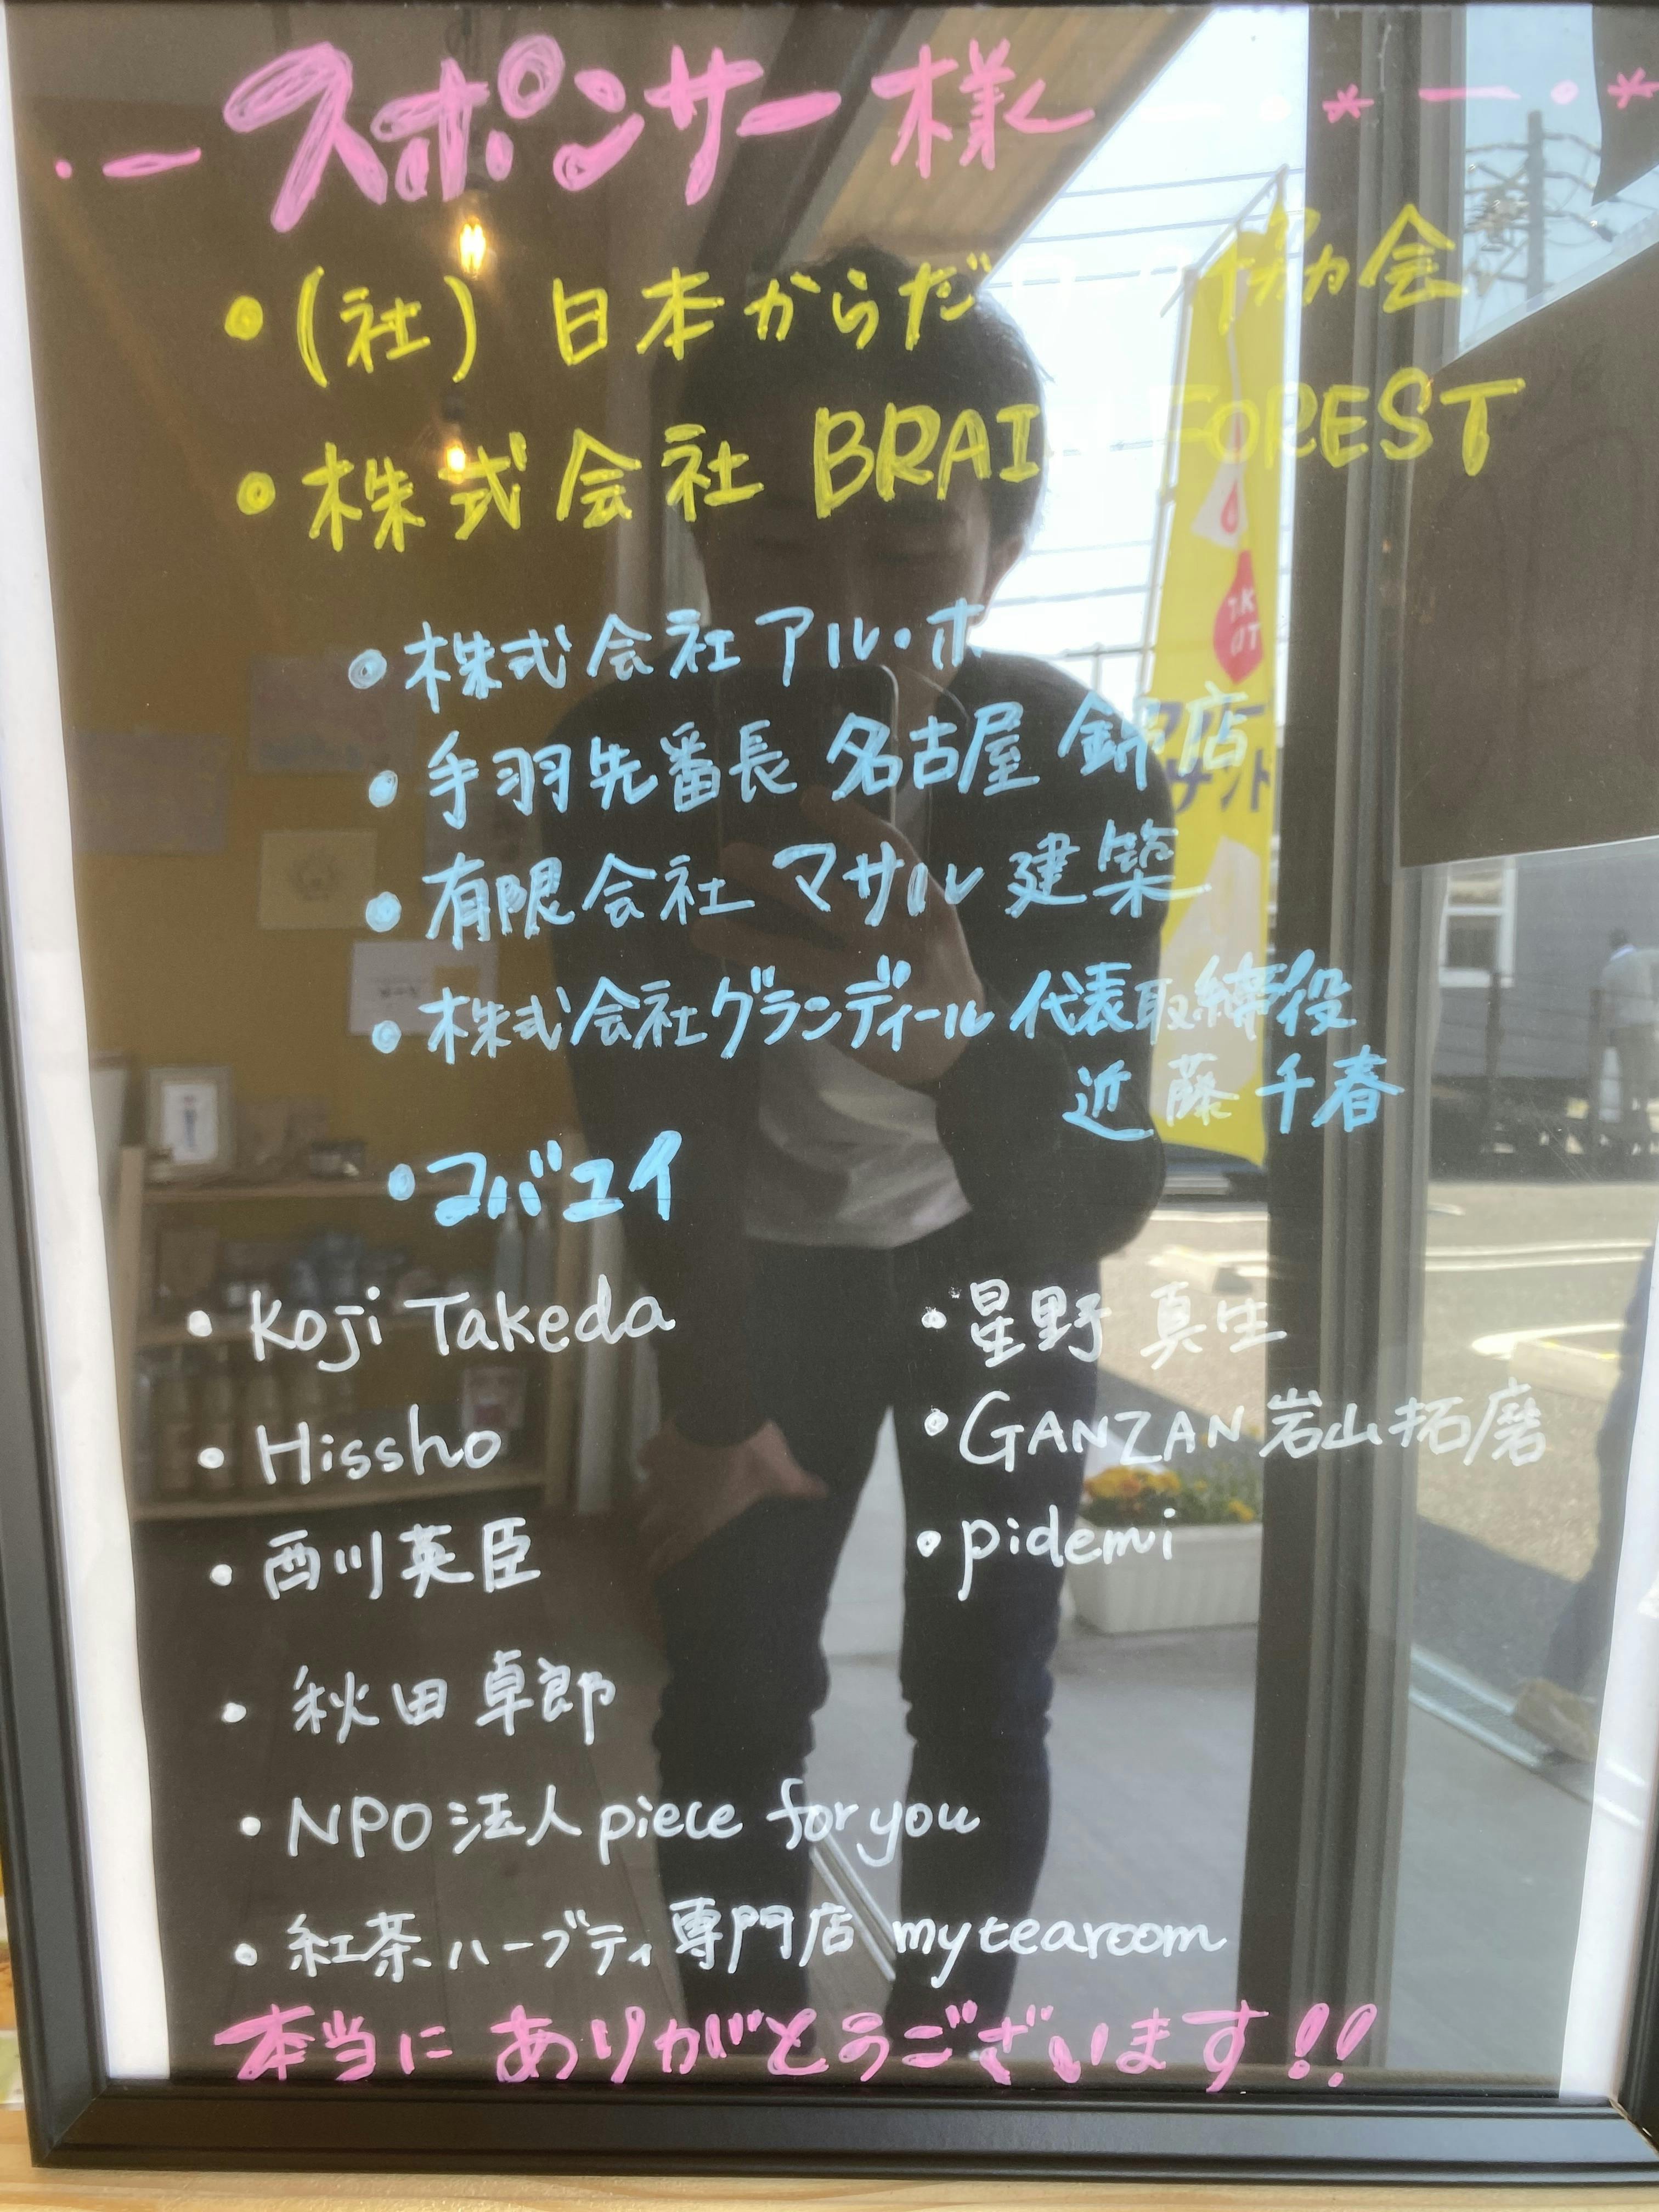 スポンサー様
・(社)日本からだワーク協会
・株式会社 BRAIN FOREST
・株式会社 アル・ホ
・手羽先番長 名古屋 錦店
・有限会社 マサル建築
・株式会社グランディール 代表取締役
近藤千春
・コバユイ
・Koji Takeda
・星野 真生
・Hissho
・GANZAN 岩山拓磨
・西川英臣
・pidemi
・秋田 卓郎
・NPO法人 piece for you
・紅茶ハーブティ専門店 mytearoom
本当に ありがとうございます!!